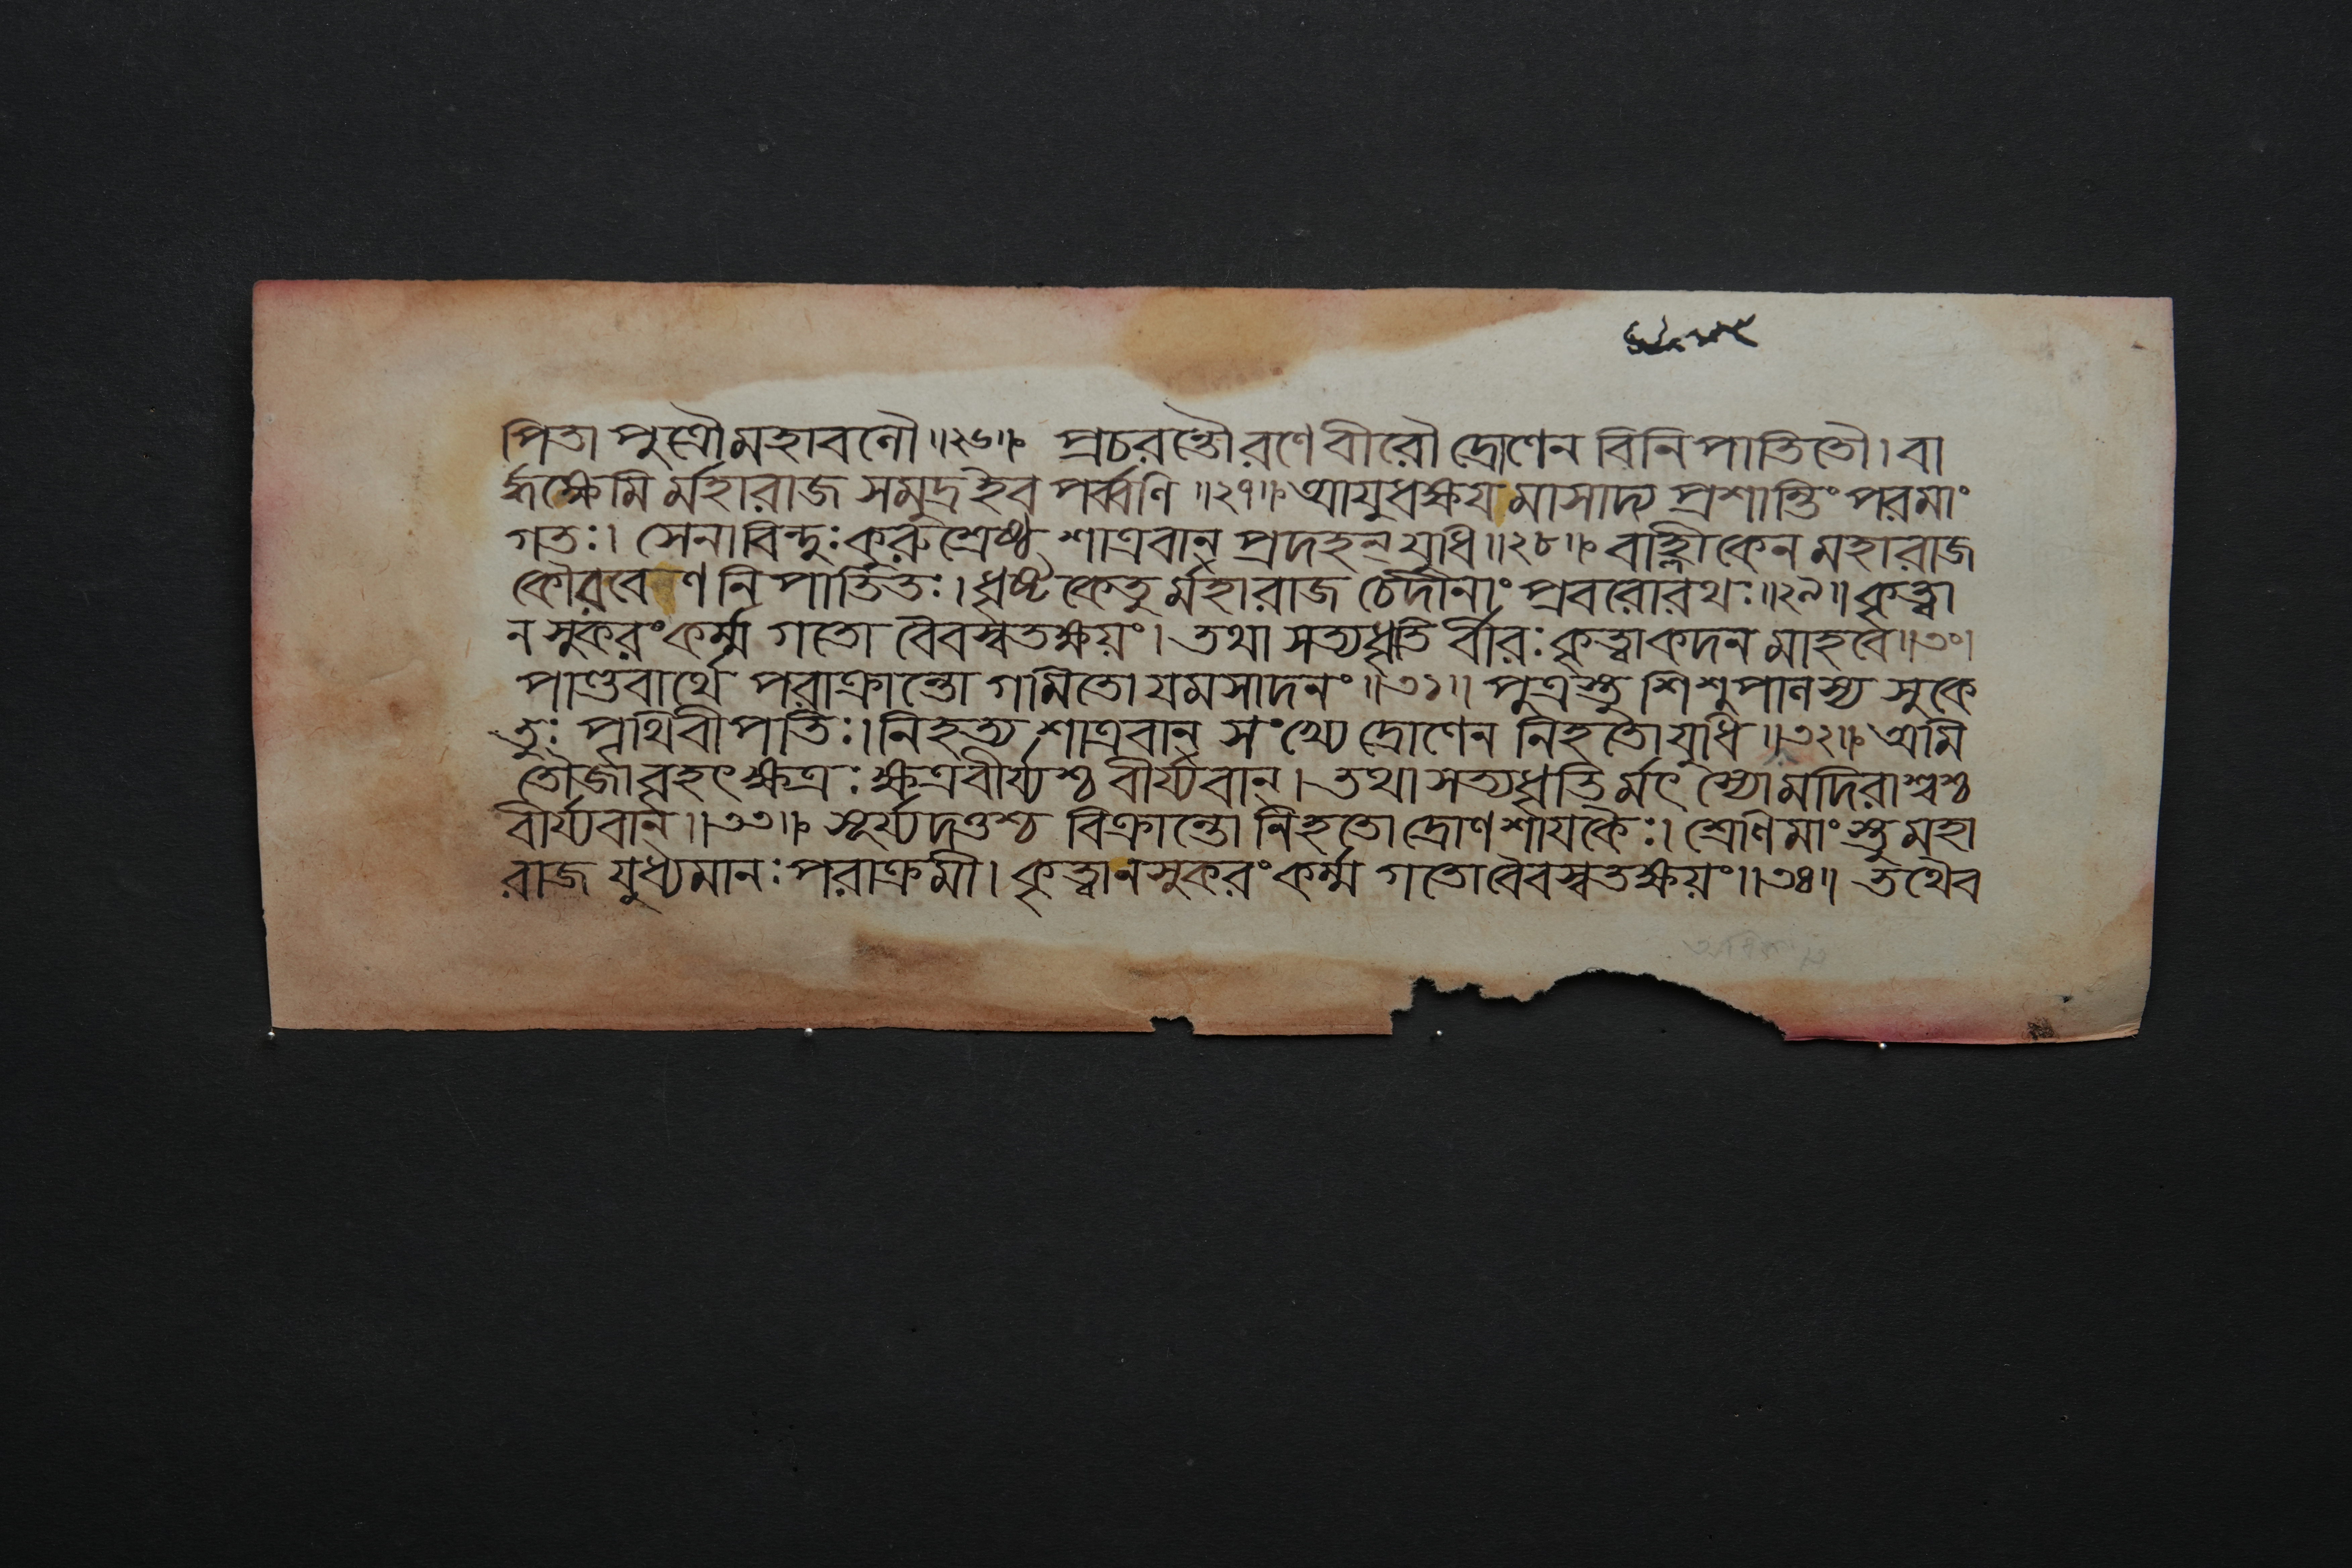 পিতা পুত্রৌ মহাবলৌ ॥২৬॥ প্রচরন্তৌ রণে বীরৌ দ্রোণেন বিনিপাতিতৌ। বা
র্দ্ধক্ষেমি র্মহারাজ সমুদ্র ইব পর্ব্বণি ॥২৭॥ আয়ুধক্ষয় মাসাদ্য প্রশান্তিং পরমাং
গতঃ। সেনাবিন্দুঃ কুরুশ্রেষ্ঠ শাত্রবান্ প্রদহন্ যুধি ॥২৮॥ বাহ্লিকেন মহারাজ
কৌরবে ণ নিপাতিতঃ। ধৃষ্টকেতু র্মহারাজ চেদীনাং প্রবরোরথঃ ॥২৯॥ কৃত্বা
ন সুকরং কর্ম্ম গতো বৈবস্বতক্ষয়ং। তথা সত্যধৃতি র্বীরঃ কৃত্বা কদন মাহবে ॥৩০।
পাণ্ডবার্থে পরাক্রান্তো গমিতো যমসাদনং ॥৩১॥ পুত্রস্তু শিশুপালস্য সুকে
তুঃ পৃথিবীপতিঃ। নিহত্য শাত্রবান্ সংখ্যে দ্রোণেন নিহতো যুধি ॥৩২॥ অমি
তৌর্জা বৃহৎক্ষত্রঃ ক্ষত্রবীর্য্যশ্চ বীর্য্যবান্। তথা সত্যধৃতি র্মৎস্যো মদিরাশ্বশ্চ
বীর্য্যবান্ ॥৩৩॥ সূর্য্যদত্তশ্চ বিক্রান্তো নিহতো দ্রোণশায়কৈঃ। শ্রেণিমাংস্তু মহা
রাজ যুধ্যমানঃ পরাক্রমী। কৃত্বা নসুকরং কর্ম্ম গতো বৈবস্বতক্ষয়ং ॥৩৪॥ তথৈব